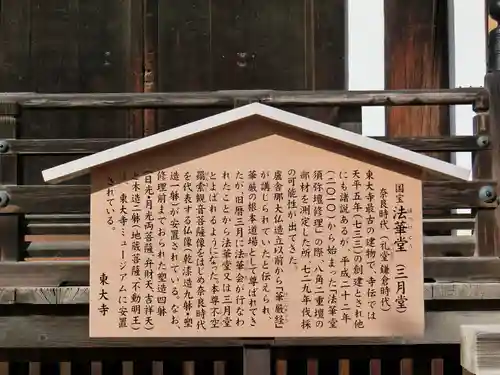 国宝 法華堂（三月堂）
ほっけどう
奈良時代（礼堂 鎌倉時代）
東大寺最古の建物で、寺伝では
天平五年（七三三）の創建とされ他
にも諸説あるが、平成二十二年
（二〇一〇）から始まった「法華堂
須弥壇修理」の際、八角二重壇の
部材を測定した所、七二九年伐採
の可能性が出てきた。
盧舎那大仏造立以前から『華厳経』
が講じられていたと伝えられ、
華厳の根本道場として尊ばれてき
たが、旧暦三月に法華会が行なわ
れたことから法華堂又は三月堂
とよばれるようになった。本尊不空
羂索観音菩薩像をはじめ奈良時代
を代表する仏像（乾漆造九躰・塑
造一躰）が安置されている。なお、
修理前までおられた塑造四躰
（日光・月光両菩薩・弁財天、吉祥天）
と木造二躰（地蔵菩薩・不動明王）
は、東大寺ミュージアムに安置
されている。
東大寺